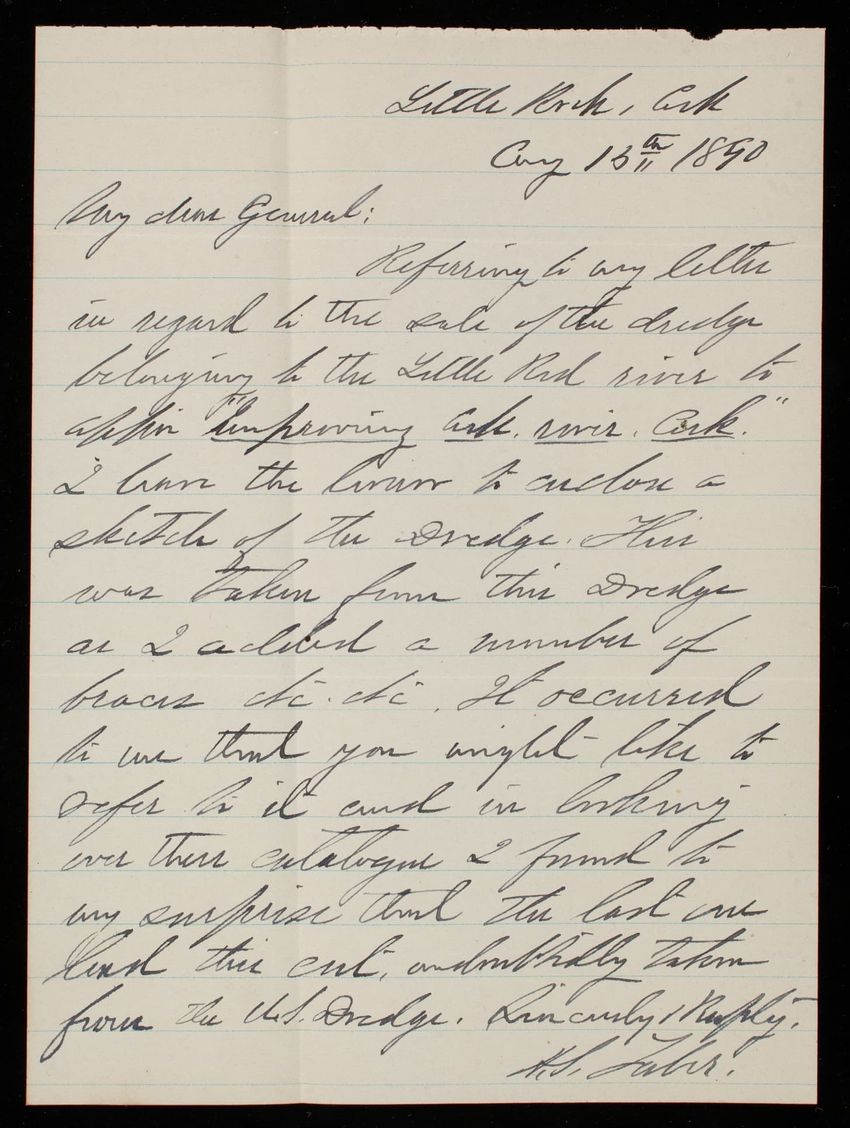 Little Rock, Ark
Aug 13th 1890
My dear General:
Referring to my letter
in regard to the sale of the dredge
belonging to the Little Red river to
appn "Improving Ark. river. Ark."
I have the honor to enclose a
sketch of the Dredge. This
was taken from this Dredge
as I added a number of
braces etc. etc. It occurred
to me that you might like to
refer to it and in looking
over their catalogue I found to
my surprise that the last one
had this cut, undoubtedly taken
from the U.S. Dredge. Sincerely & Respfly.
H.S. Taber.